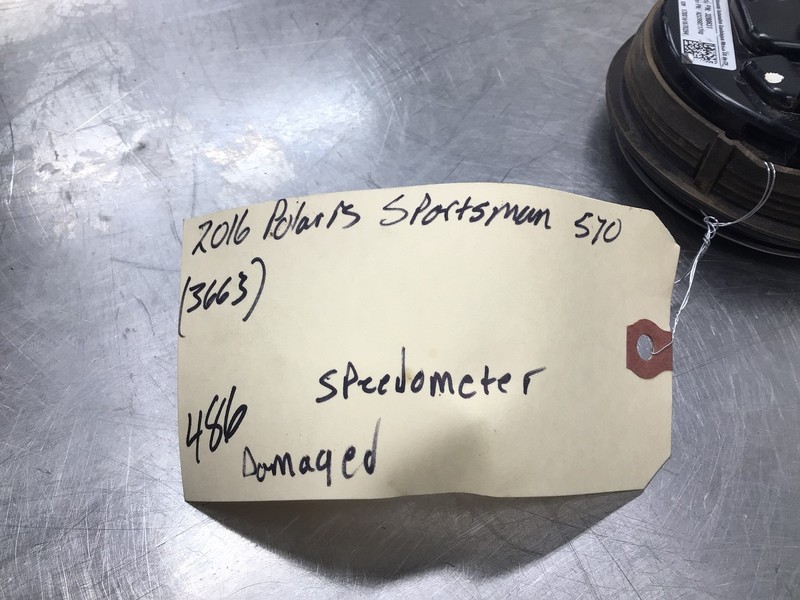 2016 Polaris Sportsman 570
(3663)
Speedometer
486
Damaged